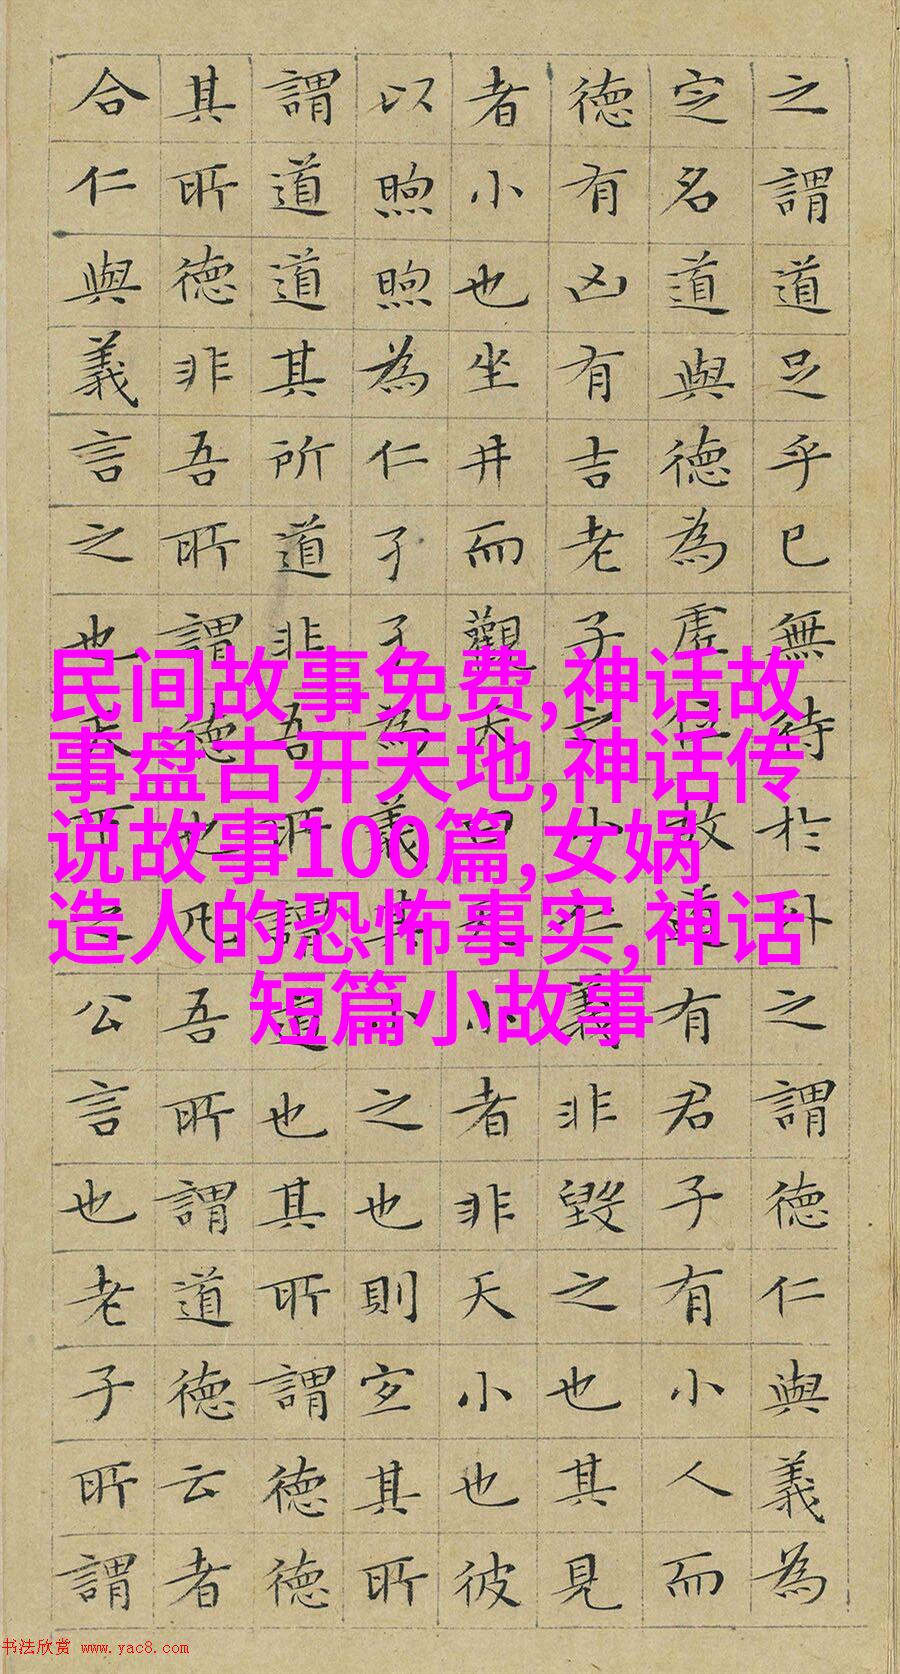 之謂道足乎已無待於外之謂德仁與義為
定名道與德為虛位故道有君子有小人而
德有凶有吉老子之小仁義非毀之也其見
者小也坐井而觀天曰天小者非天小也彼
以煦煦為仁孑孑為義其小之也則宜其所
謂道道其所道非吾所謂道也其所謂德德
其所德非吾所謂德也凡吾所謂道德云者
合仁與義言之也天下之公言也老子所謂
民间故事免费,神话故
事盘古开天地,神话传
说故事100篇,女娲
造人的恐怖事实,神话
短篇小故事
书法欣赏 www.yac8.com